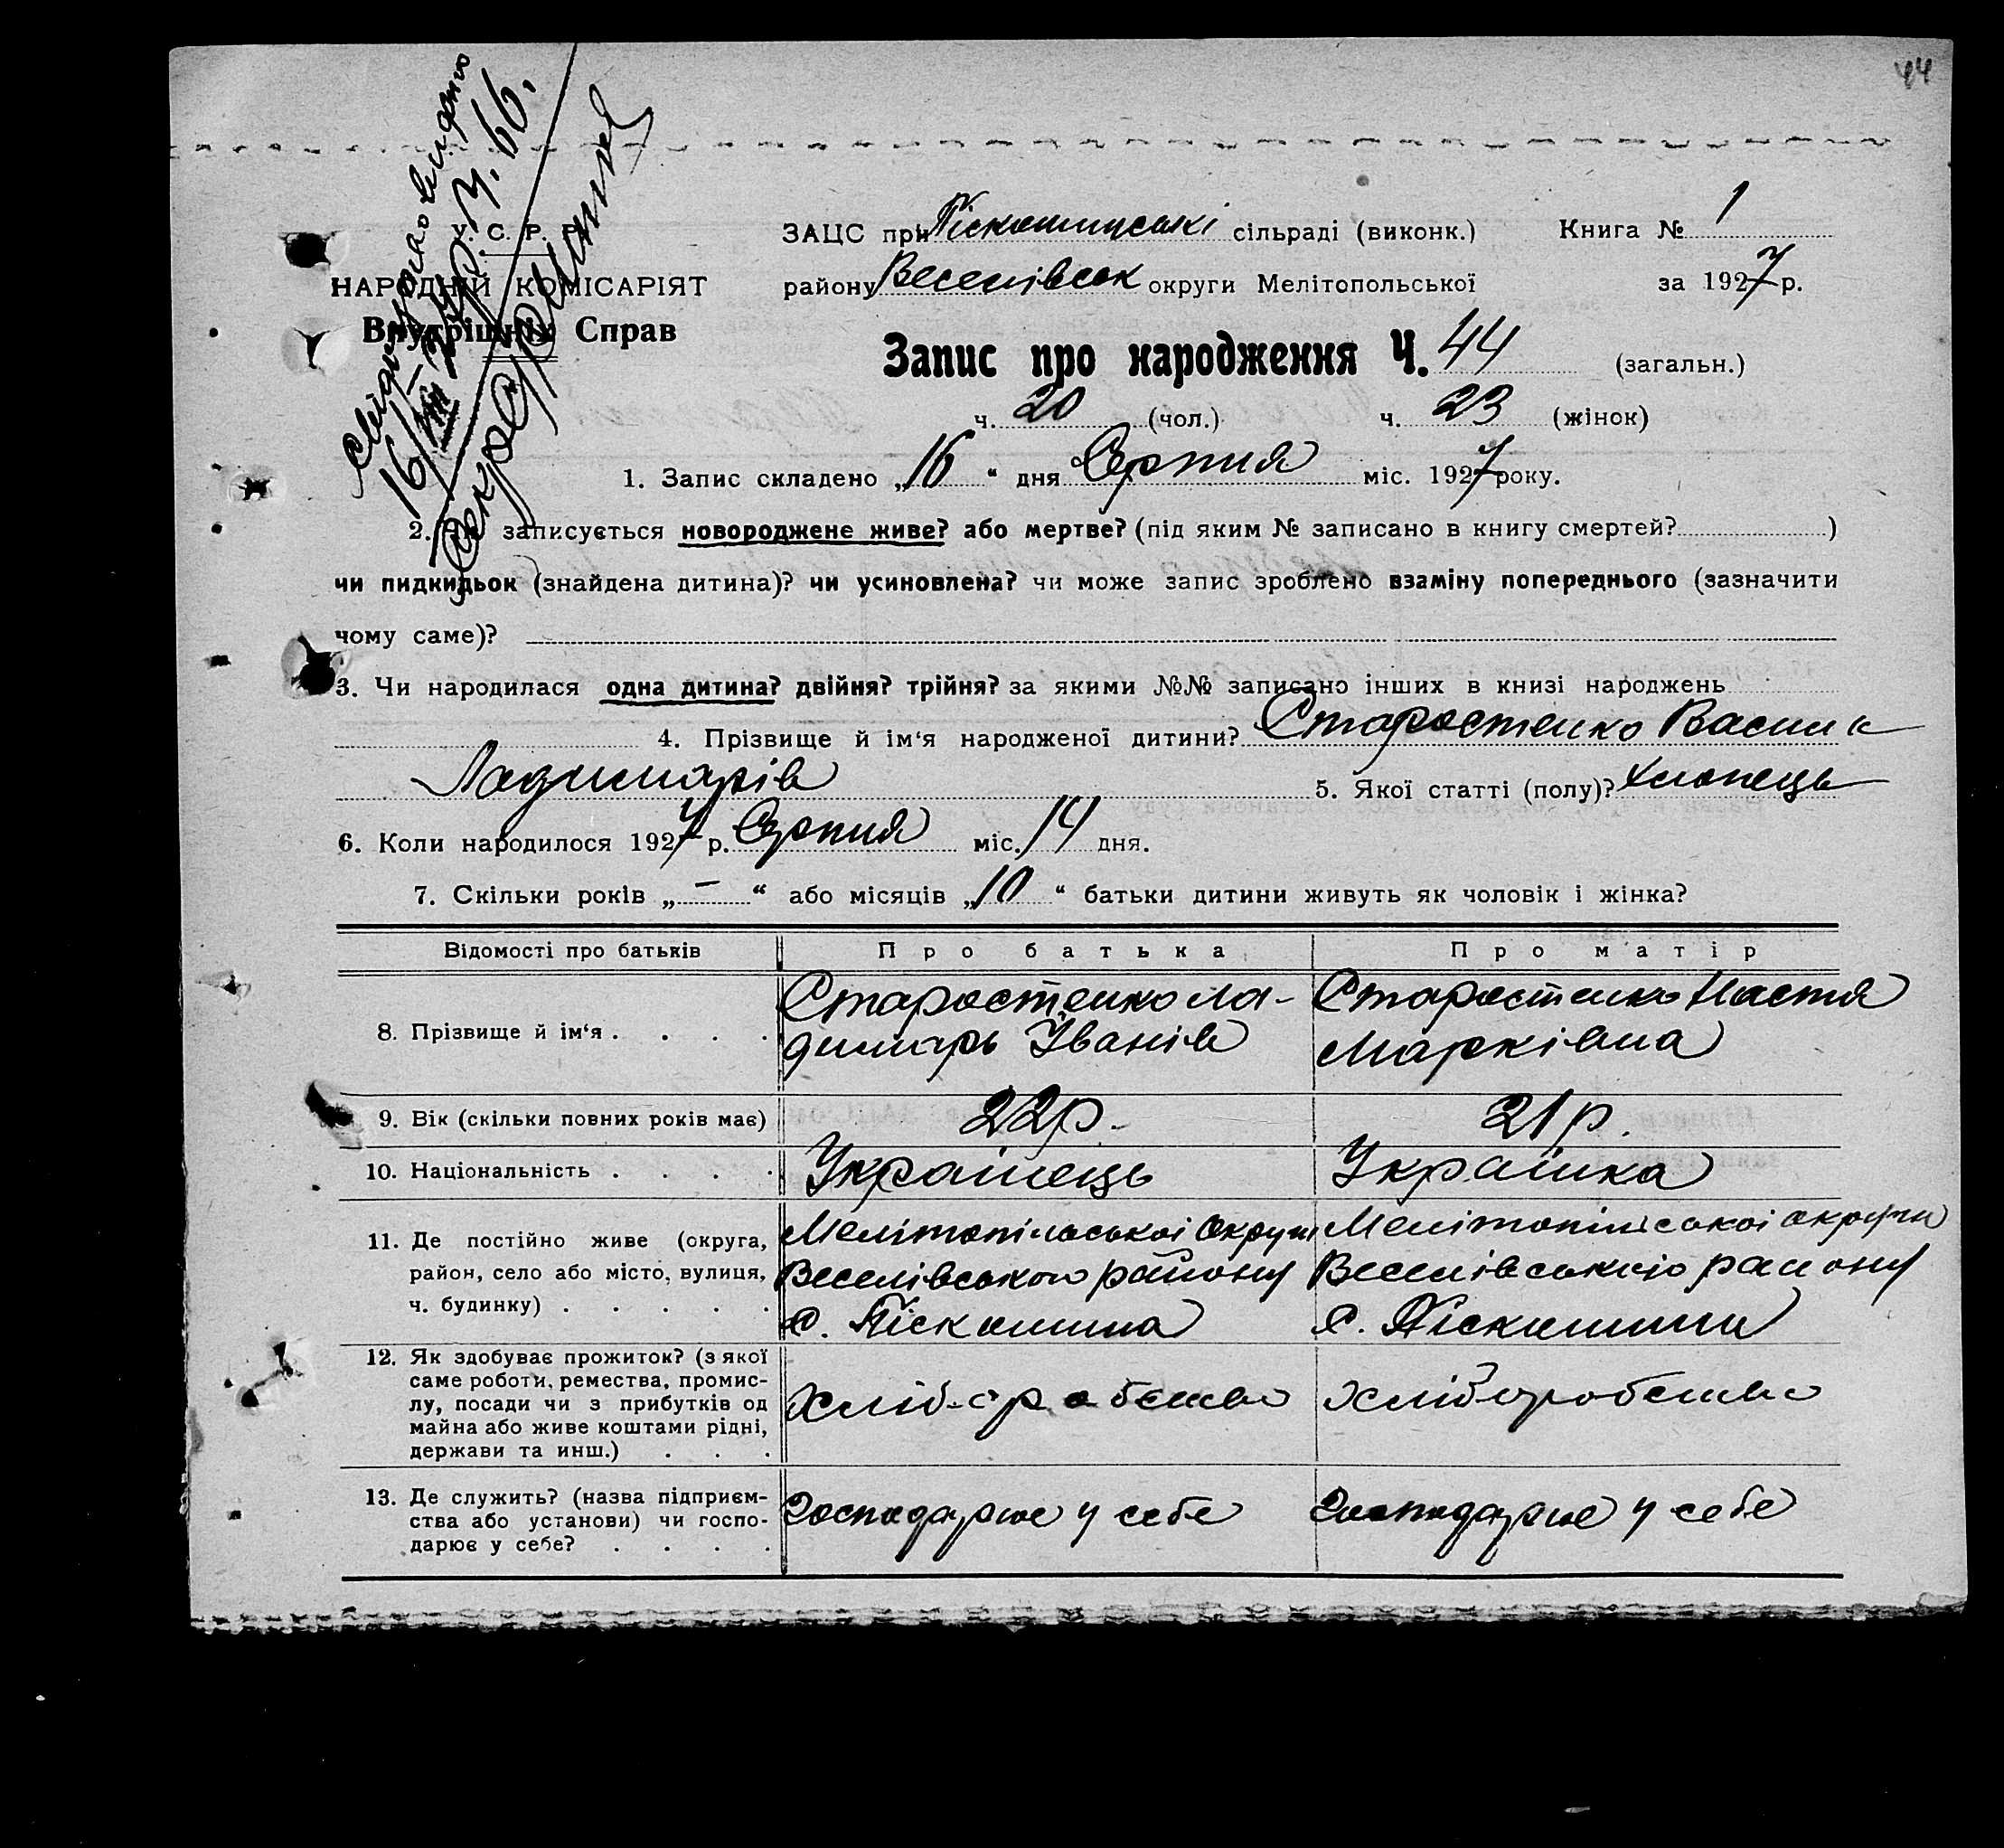 44
Свідоцтво видано
У. С. Р. Р.
НАРОДНІЙ КОМІСАРІЯТ
Внутрішніх Справ
ЗАЦС при Піскошинські сільраді (виконк.) Книга № 1
району Веселівськ округи Мелітопольської за 1927 р.
Запис про народження Ч. 44 (загальн.)
ч. 20 (чол.) ч. 23 (жінок)
1. Запис складено „16“ дня Серпня міс. 1927 року.
2. записується новороджене живе? або мертве? (під яким № записано в книгу смертей? )
чи пидкидьок (знайдена дитина)? чи усиновлена? чи може запис зроблено взаміну попереднього (зазначити
чому саме)?
3. Чи народилася одна дитина? двійня? трійня? за якими №№ записано інших в книзі народжень
4. Прізвище й ім‘я народженої дитини? Старостенко Василь
Ладимарів 5. Якої статті (полу)? хлопець
6. Коли народилося 1927 р. Серпня міс. 14 дня.
7. Скільки років „ — “ або місяців „10“ батьки дитини живуть як чоловік і жінка?
Відомості про батьків Про батька Про матір
8. Прізвище й ім‘я . . . . Старостенко Ла-
димарь Іванів
Старостенко Настя
Марківна
9. Вік (скільки повних років має) 22р. 21р.
10. Національність . . . . Українець Українка
11. Де постійно живе (округа,
район, село або місто, вулиця,
ч. будинку) . . . . .
Мелітопільської Округи
Веселівського району
с. Піскошина
Мелітопільської округи
Веселівського району
с. Піскошина
12. Як здобуває прожиток? (з якої
саме роботи, ремества, промис-
лу, посади чи з прибутків од
майна або живе коштами рідні,
держави та инш.) . . .
Хліборобство
Хліборобство
13. Де служить? (назва підприєм-
ства або установи) чи госпо-
дарює у себе? . . . .
Господарює у себе
Господарює у себе